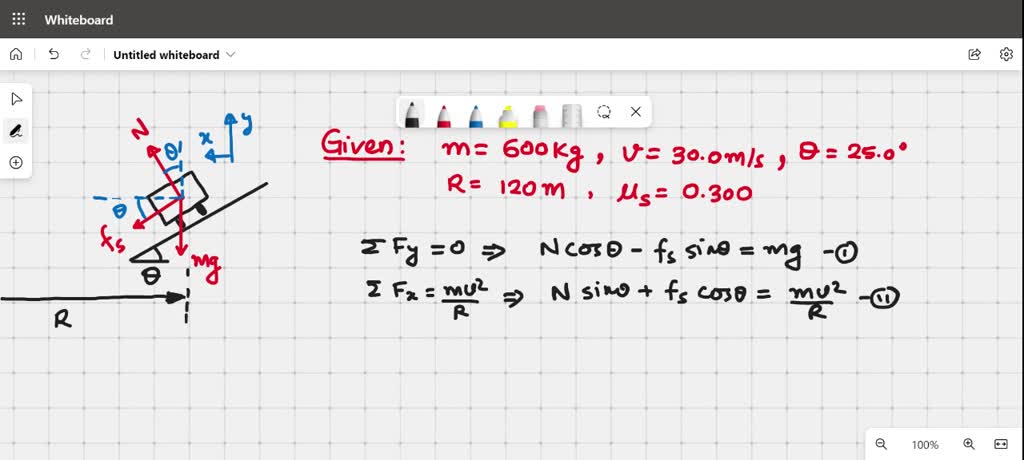 Whiteboard
Untitled whiteboard
N
θ
x
y
θ
fs
mg
θ
R
Given: m = 600kg, v = 30.0m/s, θ = 25.0°
R = 120m, μs = 0.300
Σ Fy = 0 ⇒ N cosθ - fs sinθ = mg -(i)
Σ Fx = mv²/R ⇒ N sinθ + fs cosθ = mv²/R -(ii)
100%